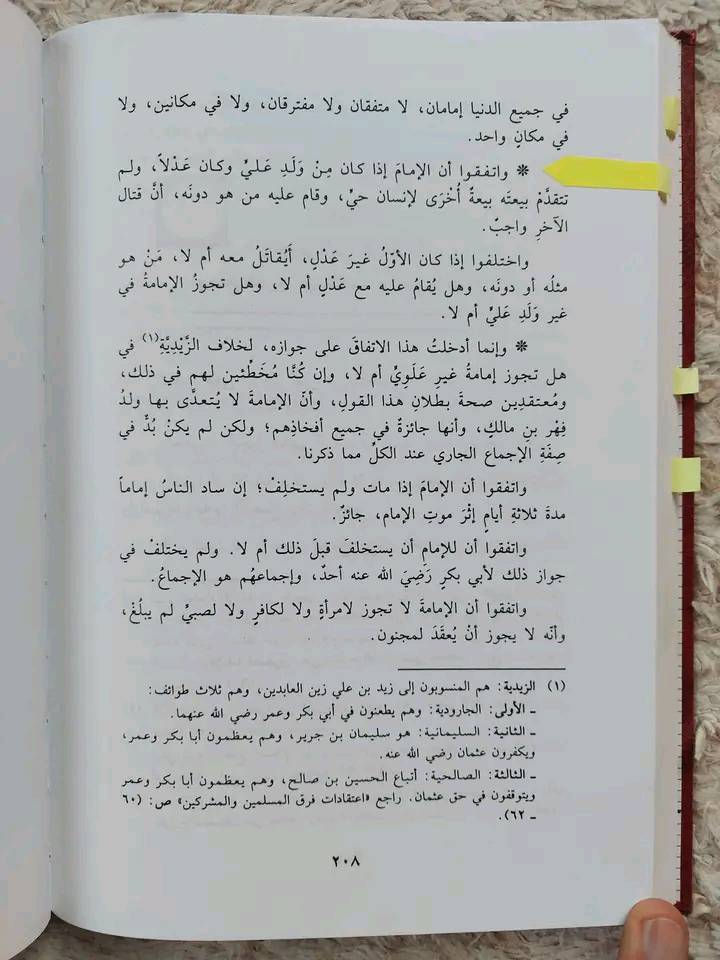 في جميع الدنيا إمامان، لا متفقان ولا مفترقان، ولا في مكانين، ولا
في مكانٍ واحد.
* واتفقوا أن الإمامَ إذا كان مِنْ وَلَدِ عَليٍّ وكان عَدْلاً، ولم
تتقدَّمْ بيعتَه بيعةٌ أُخْرَى لإنسان حيٍّ، وقام عليه من هو دونَه، أنَّ قتال
الآخرِ واجبٌ.
واختلفوا إذا كان الأوّلُ غيرَ عَدْلٍ، أَيُقاتَلُ معه أم لا، مَنْ هو
مثلُه أو دونَه، وهل يُقامُ عليه مع عَدْلٍ أم لا، وهل تجوزُ الإمامةُ في
غير وَلَدِ عَليٍّ أم لا.
* وإنما أدخلتُ هذا الاتفاقَ على جوازه، لخلاف الزَّيْدِيَّةِ(١) في
هل تجوز إمامةُ غيرِ عَلَوِيٍّ أم لا، وإن كُنَّا مُخَطِّئين لهم في ذلك،
ومُعتقدِين صحةَ بطلانِ هذا القولِ، وأنّ الإمامةَ لا يُتعدَّى بها ولدُ
فِهْر بنِ مالكٍ، وأنها جائزةٌ في جميع أفخاذِهم؛ ولكن لم يكنْ بُدٌّ في
صِفَةِ الإجماع الجاري عند الكلِّ مما ذكرنا.
واتفقوا أن الإمامَ إذا مات ولم يستخلِفْ؛ إن ساد الناسُ إماماً
مدةَ ثلاثةِ أيامٍ إثْرَ موتِ الإمام، جائزٌ.
واتفقوا أن للإمامِ أن يستخلفَ قبلَ ذلك أم لا. ولم يختلفْ في
جواز ذلك لأبي بكرٍ رَضِيَ الله عنه أحدٌ، وإجماعهُم هو الإجماعُ.
واتفقوا أن الإمامةَ لا تجوز لامرأةٍ ولا لكافرٍ ولا لصبيٍّ لم يبلُغْ،
وأنّه لا يجوز أنْ يُعقَدَ لمجنون.
(١) الزيدية: هم المنسوبون إلى زيد بن علي زين العابدين، وهم ثلاث طوائف:
ـ الأولى: الجارودية: وهم يطعنون في أبي بكر وعمر رضي الله عنهما.
ـ الثانية: السليمانية: هو سليمان بن جرير، وهم يعظمون أبا بكر وعمر،
ويكفرون عثمان رضي الله عنه.
ـ الثالثة: الصالحية: أتباع الحسين بن صالح، وهم يعظمون أبا بكر وعمر
ويتوقفون في حق عثمان. راجع «اعتقادات فرق المسلمين والمشركين» ص: (٦٠
ـ ٦٢).
٢٠٨